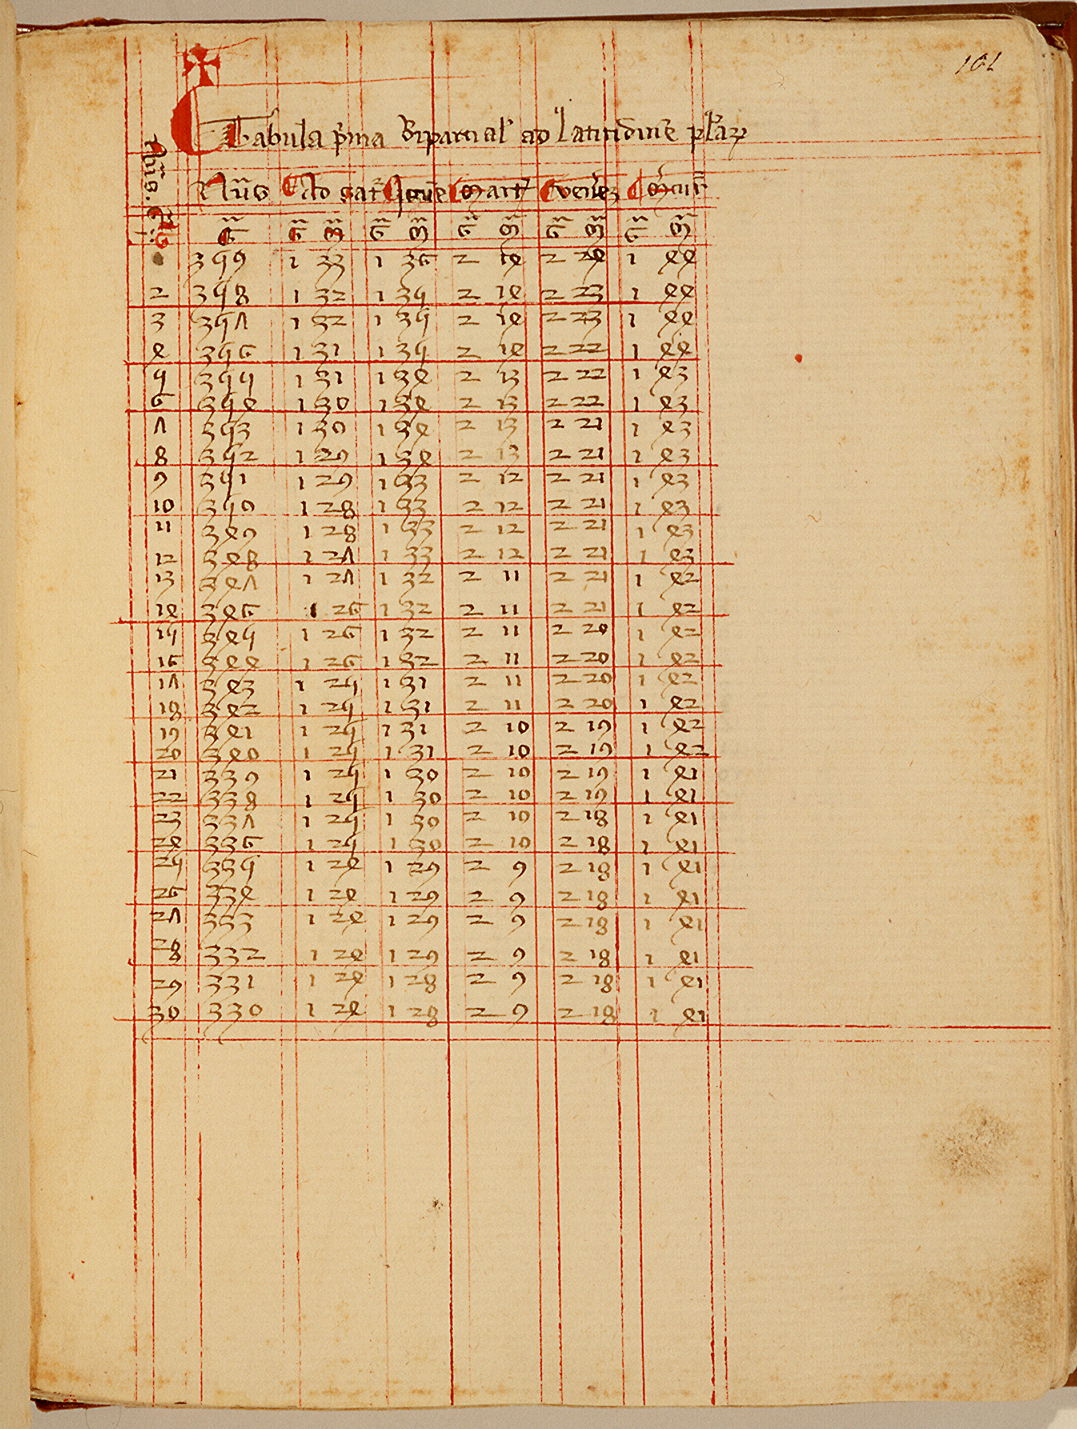 101
Tabula p̄ma Bipartial' ad latitudinē
Nūs Ad Sat' Joue Mart' Vener' Mercur'
G G M G M G M G M G M
359 1 33 1 36 2 14 2 24 1 44
2 358 1 32 1 35 2 14 2 23 1 44
3 357 1 32 1 35 2 14 2 23 1 44
4 356 1 31 1 35 2 14 2 22 1 44
5 355 1 31 1 34 2 13 2 22 1 43
6 354 1 30 1 34 2 13 2 22 1 43
7 353 1 30 1 34 2 13 2 21 1 43
8 352 1 29 1 34 2 13 2 21 1 43
9 351 1 29 1 33 2 12 2 21 1 43
10 350 1 28 1 33 2 12 2 21 1 43
11 349 1 28 1 33 2 12 2 21 1 43
12 348 1 27 1 33 2 12 2 21 1 43
13 347 1 27 1 32 2 11 2 21 1 42
14 346 1 26 1 32 2 11 2 21 1 42
15 345 1 26 1 32 2 11 2 20 1 42
16 344 1 26 1 32 2 11 2 20 1 42
17 343 1 25 1 31 2 11 2 20 1 42
18 342 1 25 1 31 2 11 2 20 1 42
19 341 1 25 1 31 2 10 2 19 1 42
20 340 1 25 1 31 2 10 2 19 1 42
21 339 1 25 1 30 2 10 2 19 1 41
22 338 1 25 1 30 2 10 2 19 1 41
23 337 1 25 1 30 2 10 2 18 1 41
24 336 1 25 1 30 2 10 2 18 1 41
25 335 1 24 1 29 2 9 2 18 1 41
26 334 1 24 1 29 2 9 2 18 1 41
27 333 1 24 1 29 2 9 2 18 1 41
28 332 1 24 1 29 2 9 2 18 1 41
29 331 1 24 1 28 2 9 2 18 1 41
30 330 1 24 1 28 2 9 2 18 1 41